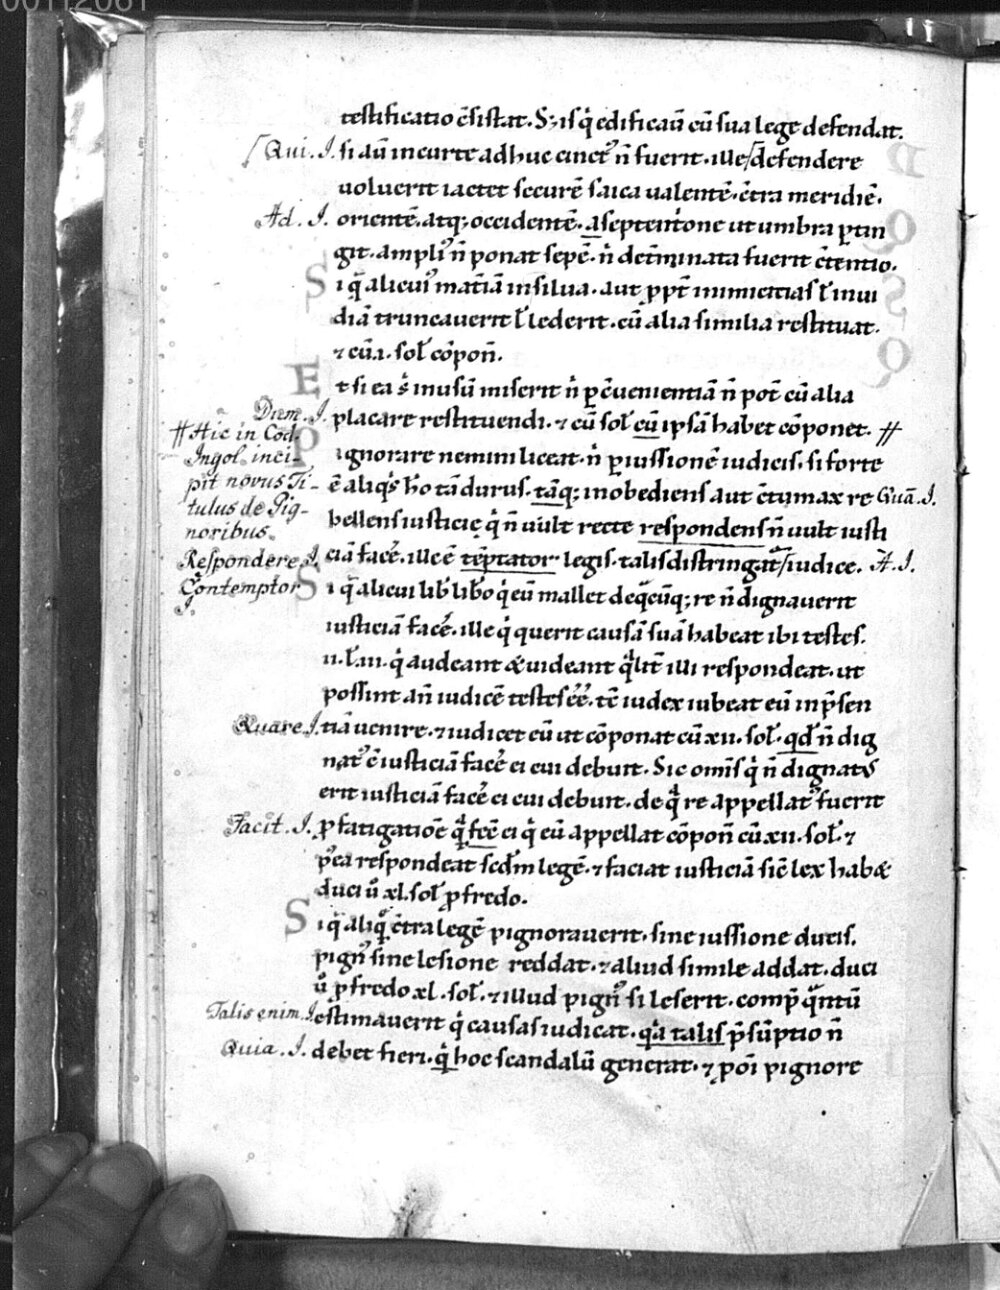 00112061
testificatio c̄sistat. S; is q̇ edificaū cū sua lege defendat.
⌈Qui. J. si aū in curte adhuc cinctꝰ n̄ fuerit. ille⌈defendere
uoluerit iactet securē saica ualentē. c̄tra meridiē.
Ad. J. orientē. atq; occidentē. a septentrione ut umbra ꝑtin
git. ampliꝰ n̄ ponat sepē. n̄ det̄minata fuerit c̄tentio.
S i q̄ alicuiꝰ mat̄iā in silua. aut ꝓpt̄ inimicitias ł inui
diā truncauerit ł lederit. cū alia similia restituat.
⁊ cū .i. soł cōpoñ.
E t si ea s̄ in usū miserit n̄ ꝑ c̄uenientiā n̄ pot̄ cū alia
Dum. J. placare restituendi. ⁊ cū soł cū ipsā habet cōponet. #
# Hic in Cod. Ingol. incipit novus Titulus de Pignoribus.
P ignorare nemini liceat. n̄ ꝑ iussionē iudicis. si forte
ē aliq̄s ħo tā durus. tāq; inobediens aut c̄tumax re Guā. J.
bellens iusticię q̇ n̄ uult recte respondens n̄ uult iusti
Respondere J. ciā facē. ille ē tēptator legis. talis distringat̄⌈iudice. A. J.
Contemptor J.
S i q̄ alicui lib̄ lib̄o q̇ eū mallet de q̄cūq; re n̄ dignauerit
iusticiā facē. ille q̇ querit causā suā habeat ibi testes.
.ii. ł .iii. q̇ audeant & uideant q̄lit̄ illi respondeat. ut
possint an̄ iudicē testes eē. tc̄ iudex iubeat eū in p̄sen
Quare J. tiā uenire. ⁊ iudicet eū ut cōponat cū xii. soł. qd̄ n̄ dig
natꝰ ē iusticiā facē ei cui debuit. Sic om̄is q̇ n̄ dignatꝰ
erit iusticiā facē ei cui debuit. de q̇ re appellatꝰ fuerit
Facit. J. ꝓ fatigatiōe q̄ fēē ei q̇ eū appellat cōpoñ cū xii. soł. ⁊
pꝰea respondeat scd̄m legē. ⁊ faciat iusticiā sic̄ lex hab&
duci ū xl. soł ꝓ fredo.
S i q̇ aliq̄ c̄tra legē pignorauerit. sine iussione ducis.
pignꝰ sine lesione reddat. ⁊ aliud simile addat. duci
ū ꝓ fredo xl. soł. ⁊ illud pignꝰ si leserit. comp̄ q̄ntū
Talis enim. J. estimauerit q̇ causas iudicat. q̇a talis p̄sūptio n̄
Quia. J. debet fieri. q̇ hoc scandalū generat. ⁊ pōi pignore